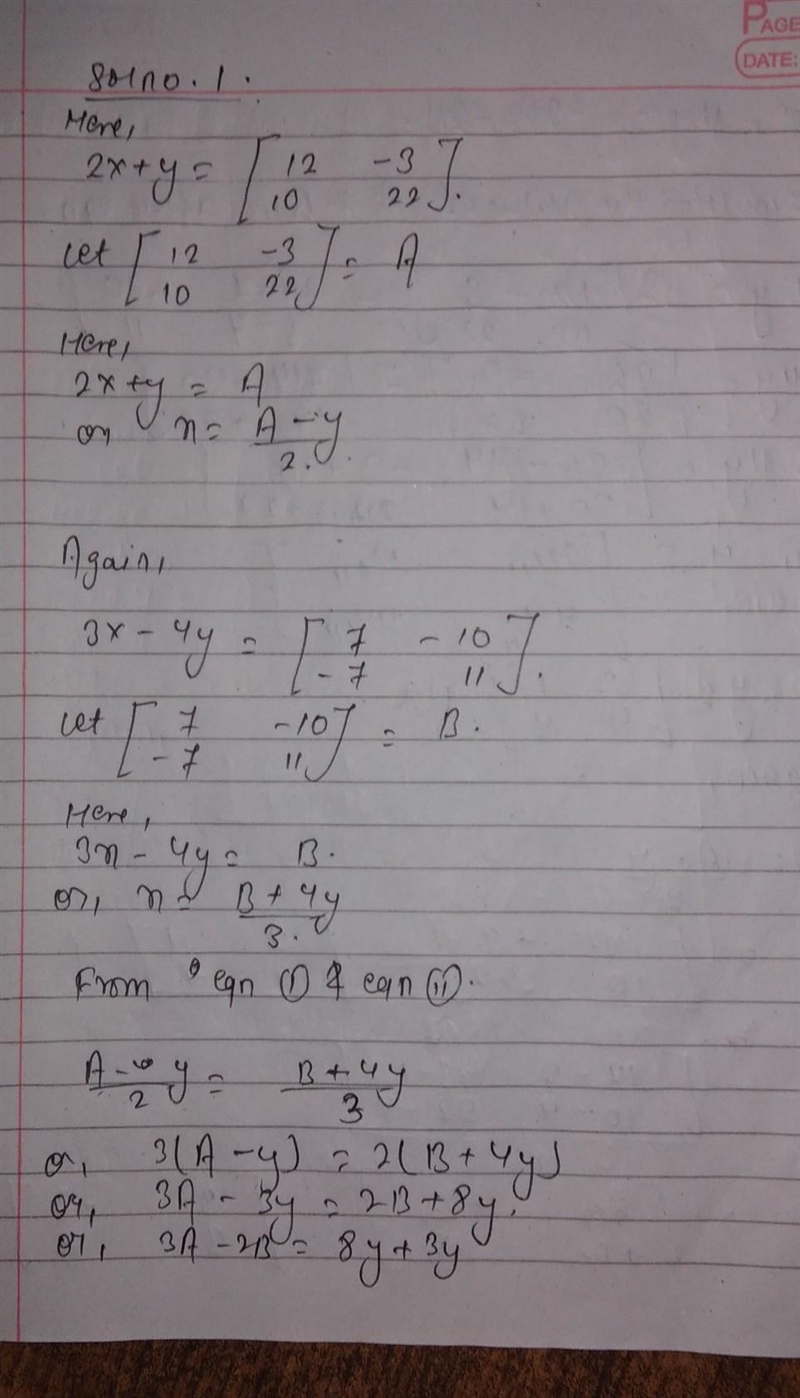 PAGE
DATE:
Soln no. 1.
Here,
2x+y = [ 12 -3
10 22 ].
Let [ 12 -3
10 22 ] = A
Here,
2x+y = A
or x = A-y
2.
Again,
3x - 4y = [ 7 -10
-7 11 ].
Let [ 7 -10
-7 11 ] = B.
Here,
3x - 4y = B.
or, x = B + 4y
3.
From eqn (i) & eqn (ii).
A - y = B + 4y
2 3
or, 3(A - y) = 2(B + 4y)
or, 3A - 3y = 2B + 8y.
or, 3A - 2B = 8y + 3y